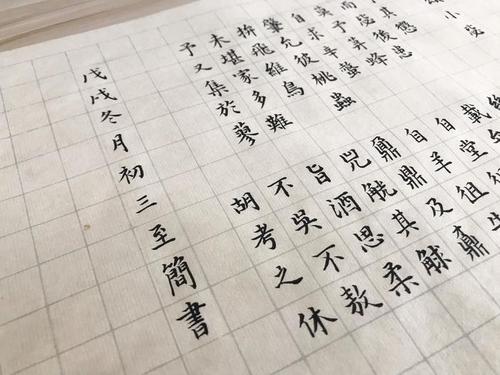 小毖
其懲
而毖後患
莫予荓蜂
自求辛螫
肇允彼桃蟲
拚飛維鳥
未堪家多難
予又集於蓼
載
自堂
自羊徂牛
鼐鼎及鼒
兕觥其觩
旨酒思柔
不吳不敖
胡考之休
戊戌冬月初三至簡書